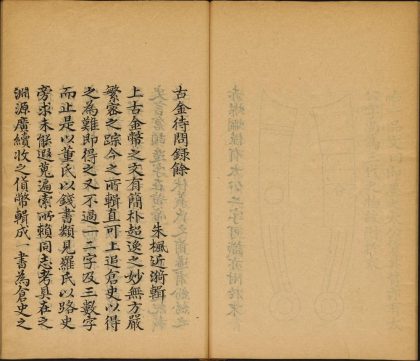 古金待問錄餘
朱楓近漪輯
上古金幣之文有簡朴超逸之妙無方嚴
繁密之踪今之所輯直可上追倉史以得
之為難即得之又不過一二字及三數字
而止是以董氏以錢書類見羅氏以路史
旁求未能遐蒐遍索所賴同志考具在之
淵源廣續收之貨幣輯成一書為倉史之